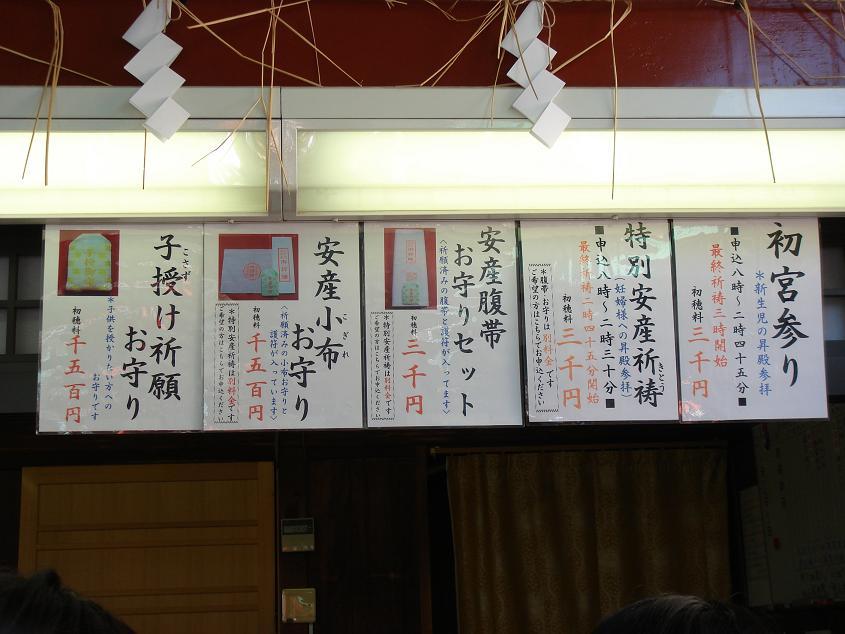 初宮参り
＊新生児の昇殿参拝
■申込八時～二時四十五分■
最終祈祷三時開始
初穂料 三千円
特別安産祈祷
きとう
（妊婦様への昇殿参拝）
■申込八時～二時三十分■
最終祈祷二時四十五分開始
初穂料 三千円
＊腹帯、お守りは別料金です
ご希望の方はこちらでお申込ください
安産腹帯
お守りセット
〈祈願済みの腹帯と護符が入ってます〉
初穂料 三千円
＊特別安産祈祷は別料金です
ご希望の方はこちらでお申込ください
安産小布
こぎれ
お守り
〈祈願済みの小布お守りと
護符が入っています〉
初穂料 千五百円
＊特別安産祈祷は別料金です
ご希望の方はこちらでお申込ください
子授け祈願
こさず
お守り
＊子供を授かりたい方への
お守りです
初穂料 千五百円